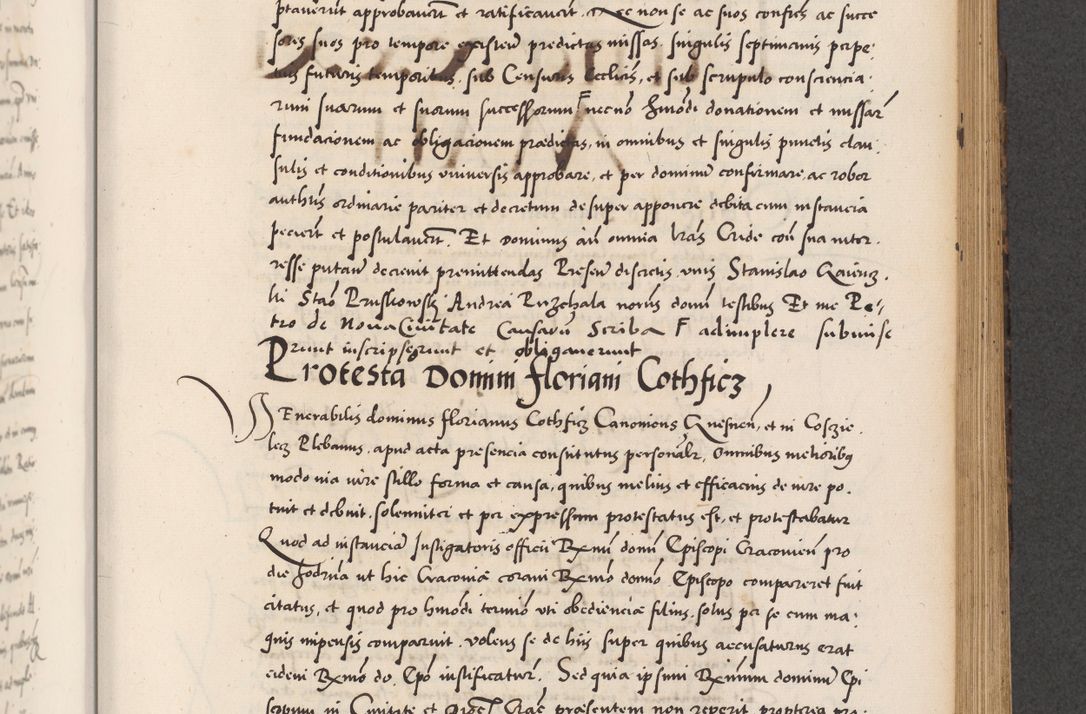 ptaverūt approbaverūt et ratificaverūt. Nec non se ac suos consices ac succe
sores suos pro tempore existeñ predictas missas, singulis septimanis perpe:
tuis futuris temporibus, sub Censuris Ecclicis, et sub scrupulo consciencia:
rum suarum et suorum successorum necnō hmōdi donationem et missarū
fundacionem ac obligacionem prædictas, in omnibus et singulis punctis clau:
sulis et conditionibus universis approbare, et per dominū confirmare, ac robor
authūs ordinarie pariter et decretum desuper apponere debita cum instancia
pecierūt et postulaverūt. Et Dominus añ omnia lras Cride coñ sua inter.
resse putañ decrevit premittendas Preseñ discretis viris Stanislao
lii Staō Pruskowski Andrea notūs domī testibus Et me Pe
tro de Nova Civitate Causarū Scriba F adimplere submise
runt inscripserunt et obligaverunt
Protesta Domini floriani Cothficz
VEnerabilis dominus florianus Cothficz Canonicus Gnesneñ, et in Coszie.
lecz Plebanus, apud acta presencia constitutus personalr, Omnibus melioribus
modo via iure stillo forma et causa, quibus melius et efficacius de iure po.
tuit et debuit, solemniter et per expressum protestatus est, et protestabatur
Quod ad instanciā Instigatoris officii Rxmi domī Episcopi Cracovieñ pro
die hodrīa ut hic Cracoviæ coram Rxmo domō Episcopo compareret fuit
citatus, et quod pro hmōdi termīo uti obedienciæ filius, solus per se cum ma:
gnis impensis comparuit. volens se de hiis super quibus accusaturus erat
eidem Rxmo do. Epō iustificatur. Sed quia ipsum Rxmum dominū Epi
scopum in Civitate et Præsentem non reperit propterea pro